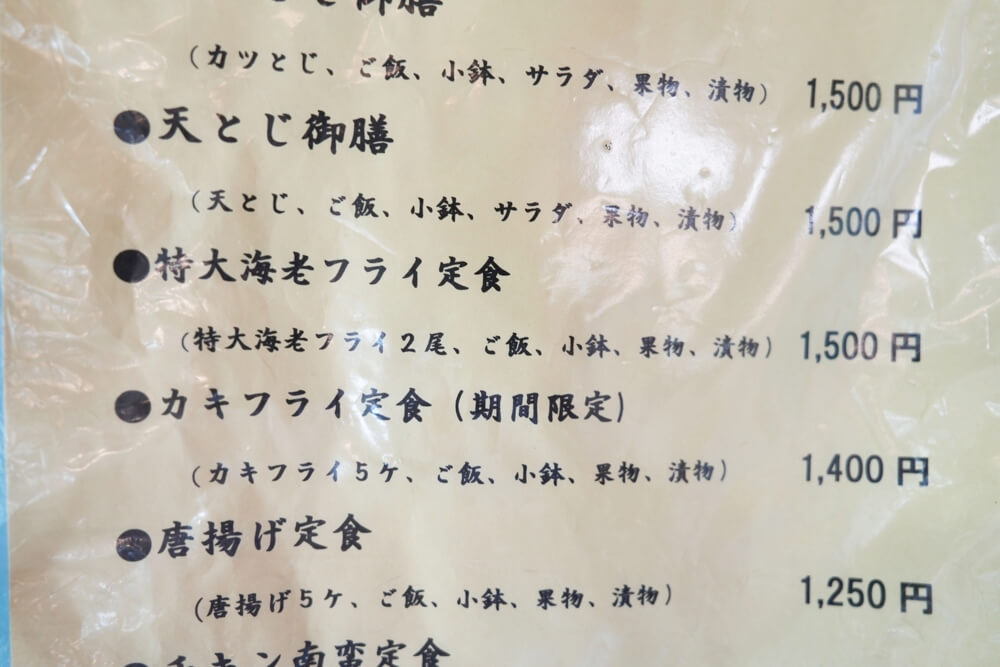 とじ御膳
（カツとじ、ご飯、小鉢、サラダ、果物、漬物） 1,500 円
●天とじ御膳
（天とじ、ご飯、小鉢、サラダ、果物、漬物） 1,500 円
●特大海老フライ定食
（特大海老フライ２尾、ご飯、小鉢、果物、漬物） 1,500 円
●カキフライ定食（期間限定）
（カキフライ５ケ、ご飯、小鉢、果物、漬物） 1,400 円
●唐揚げ定食
（唐揚げ５ケ、ご飯、小鉢、果物、漬物） 1,250 円
●チキン南蛮定食